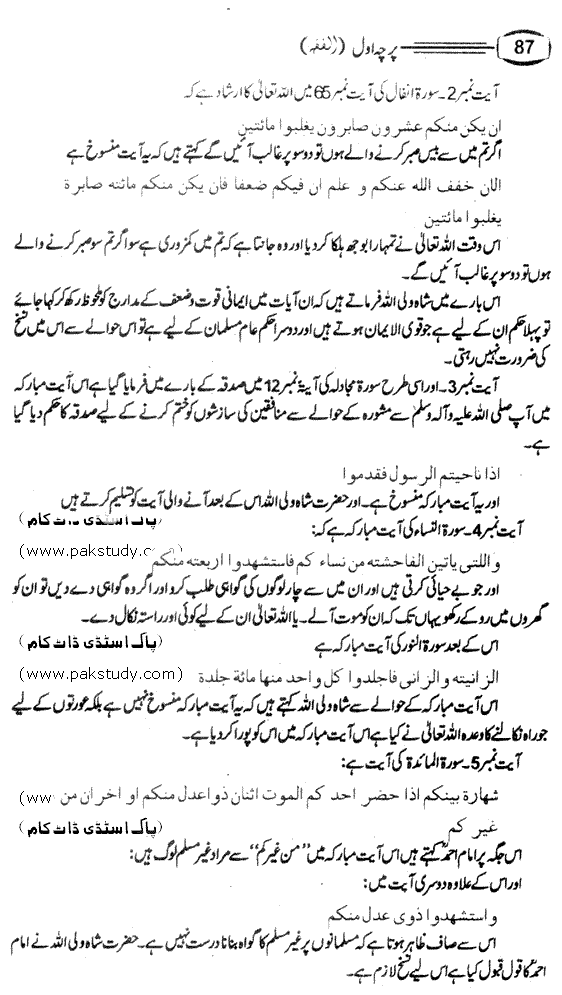 87 پرچہ اول (الفقہ)
آیت نمبر 2۔ سورۃ انفال کی آیت نمبر 65 میں اللہ تعالیٰ کا ارشاد ہے کہ
ان یکن منکم عشرون صابرون یغلبوا مائتین
اگر تم میں سے بیس صبر کرنے والے ہوں تو دو سو پر غالب آئیں گے کہتے ہیں کہ یہ آیت منسوخ ہے
الان خفف الله عنکم و علم ان فیکم ضعفا فان یکن منکم مائته صابرة
یغلبوا مائتین
اس وقت اللہ تعالیٰ نے تمہارا بوجھ ہلکا کر دیا اور وہ جانتا ہے کہ تم میں کمزوری ہے سو اگر تم سو صبر کرنے والے
ہوں تو دو سو پر غالب آئیں گے۔
اس بارے میں شاہ ولی اللہ فرماتے ہیں کہ ان آیات میں ایمانی قوت وضعف کے مدارج کو ملحوظ رکھ کر کہا جائے
تو پہلا حکم ان کے لیے ہے جو قوی الایمان ہوتے ہیں اور دوسرا حکم عام مسلمان کے لیے ہے تو اس حوالے سے اس میں نسخ
کی ضرورت نہیں رہتی۔
آیت نمبر 3۔ اور اسی طرح سورۃ مجادلہ کی آیۃ نمبر 12 میں صدقہ کے بارے میں فرمایا گیا ہے اس آیت مبارکہ
میں آپ صلی اللہ علیہ وآلہ وسلم سے مشورہ کے حوالے سے منافقین کی سازشوں کو ختم کرنے کے لیے صدقہ کا حکم دیا گیا
ہے۔
اذا ناحیتم الرسول فقدموا
اور یہ آیت مبارکہ منسوخ ہے۔ اور حضرت شاہ ولی اللہ اس کے بعد آنے والی آیت کو تسلیم کرتے ہیں
آیت نمبر 4۔ سورۃ النساء کی آیت مبارکہ ہے کہ: پاک اسٹڈی ڈاٹ کام)
واللتی یاتین الفاحشته من نساء کم فاستشهدوا اربعته منکم (www.pakstudy.com)
اور جو بے حیائی کرتی ہیں اور ان میں سے چار لوگوں کی گواہی طلب کرو اور اگر وہ گواہی دے دیں تو ان کو
گھروں میں روکے رکھو یہاں تک کہ ان کو موت آ لے۔ یا اللہ تعالیٰ ان کے لیے کوئی اور راستہ نکال دے۔
اس کے بعد سورۃ النور کی آیت مبارکہ ہے پاک اسٹڈی ڈاٹ کام)
الزانیته والزانی فاجلدوا کل واحد منها مائة جلدة (www.pakstudy.com)
اس آیت مبارکہ کے حوالے سے شاہ ولی اللہ کہتے ہیں کہ یہ آیت مبارکہ منسوخ نہیں ہے بلکہ عورتوں کے لیے
جو راہ نکالنے کا وعدہ اللہ تعالیٰ نے کیا ہے اس آیت مبارکہ میں اس کو پورا کر دیا ہے۔
آیت نمبر 5۔ سورۃ المائدۃ کی آیت ہے:
شهارة بینکم اذا حضر احد کم الموت اثنان ذوا عدل منکم او اخران من (ww
غیر کم پاک اسٹڈی ڈاٹ کام)
اس جگہ پر امام احمدؒ کہتے ہیں اس آیت مبارکہ میں ”من غیرکم“ سے مراد غیر مسلم لوگ ہیں:
اور اس کے علاوہ دوسری آیت میں:
واستشهدوا ذوی عدل منکم
اس سے صاف ظاہر ہوتا ہے کہ مسلمانوں پر غیر مسلم کا گواہ بنانا درست نہیں ہے۔ حضرت شاہ ولی اللہ نے امام
احمدؒ کا قول قبول کیا ہے اس لیے نسخ لازم ہے۔